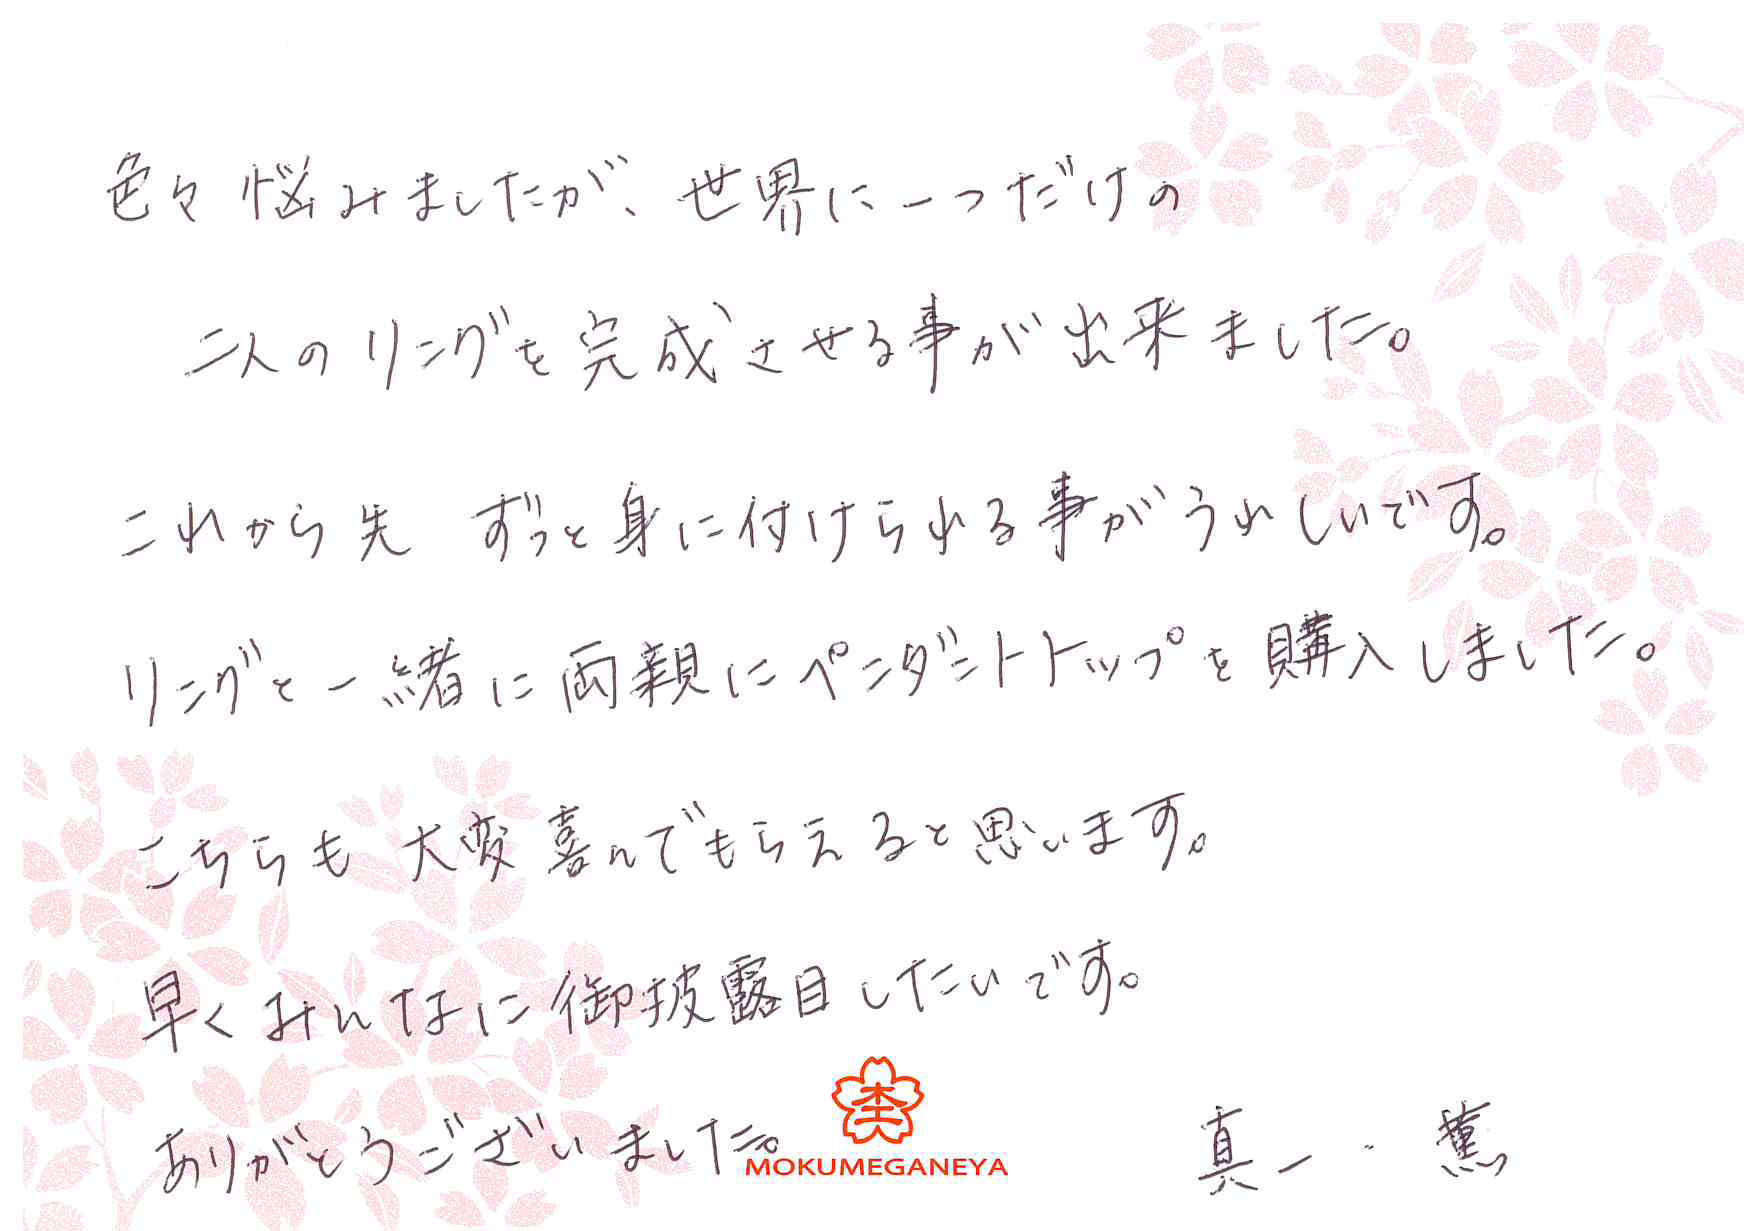 色々悩みましたが、世界に一つだけの
二人のリングを完成させる事が出来ました。
これから先 ずっと身に付けられる事がうれしいです。
リングと一緒に両親にペンダントトップを購入しました。
こちらも大変喜んでもらえると思います。
早くみんなに御披露目したいです。
ありがとうございました。
杢
MOKUMEGANEYA
真一・薫